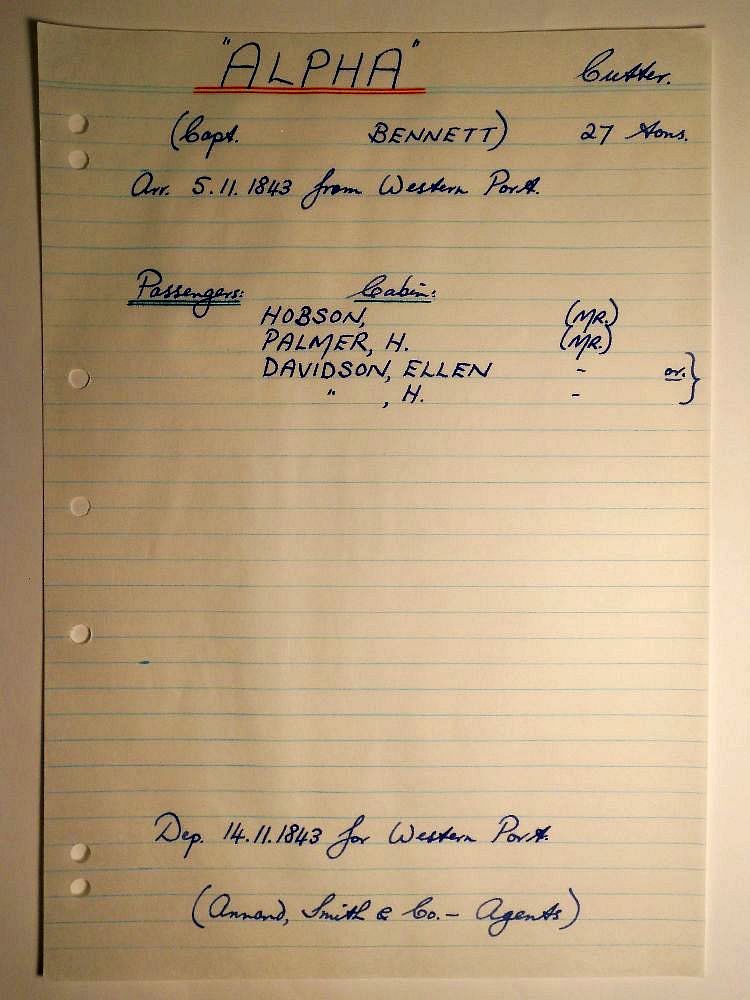 "ALPHA" Cutter.
(Capt. BENNETT) 27 tons.
Arr. 5.11.1843 from Western Port.
Passengers: Cabin:
HOBSON, (MR.)
PALMER, H. (MR.)
DAVIDSON, ELLEN - or. }
" , H. -
Dep. 14.11.1843 for Western Port.
(Annand, Smith & Co. - Agents)